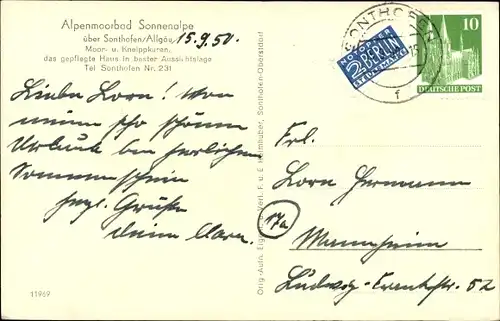 Alpenmoorbad Sonnenalpe
über Sonthofen/Allgäu, 15.9.50.
Moor- u. Kneippkuren,
das gepflegte Haus in bester Aussichtslage
Tel Sonthofen Nr. 231
Liebe Lore! Von
schönen
Urlaub bei herrlichem
Sonnenschein
herzl. Grüße
deine
11969
Orig.-Aufn. Eigent. u. Verl. F. u. E. Heimhuber, Sonthofen-Oberstdorf
SONTHOFEN
f
NOTOPFER
2 BERLIN
STEUERMARKE
10
DEUTSCHE POST
Frl.
Lore Hermann
17a
Mannheim
Ludwig-Frank-str. 52